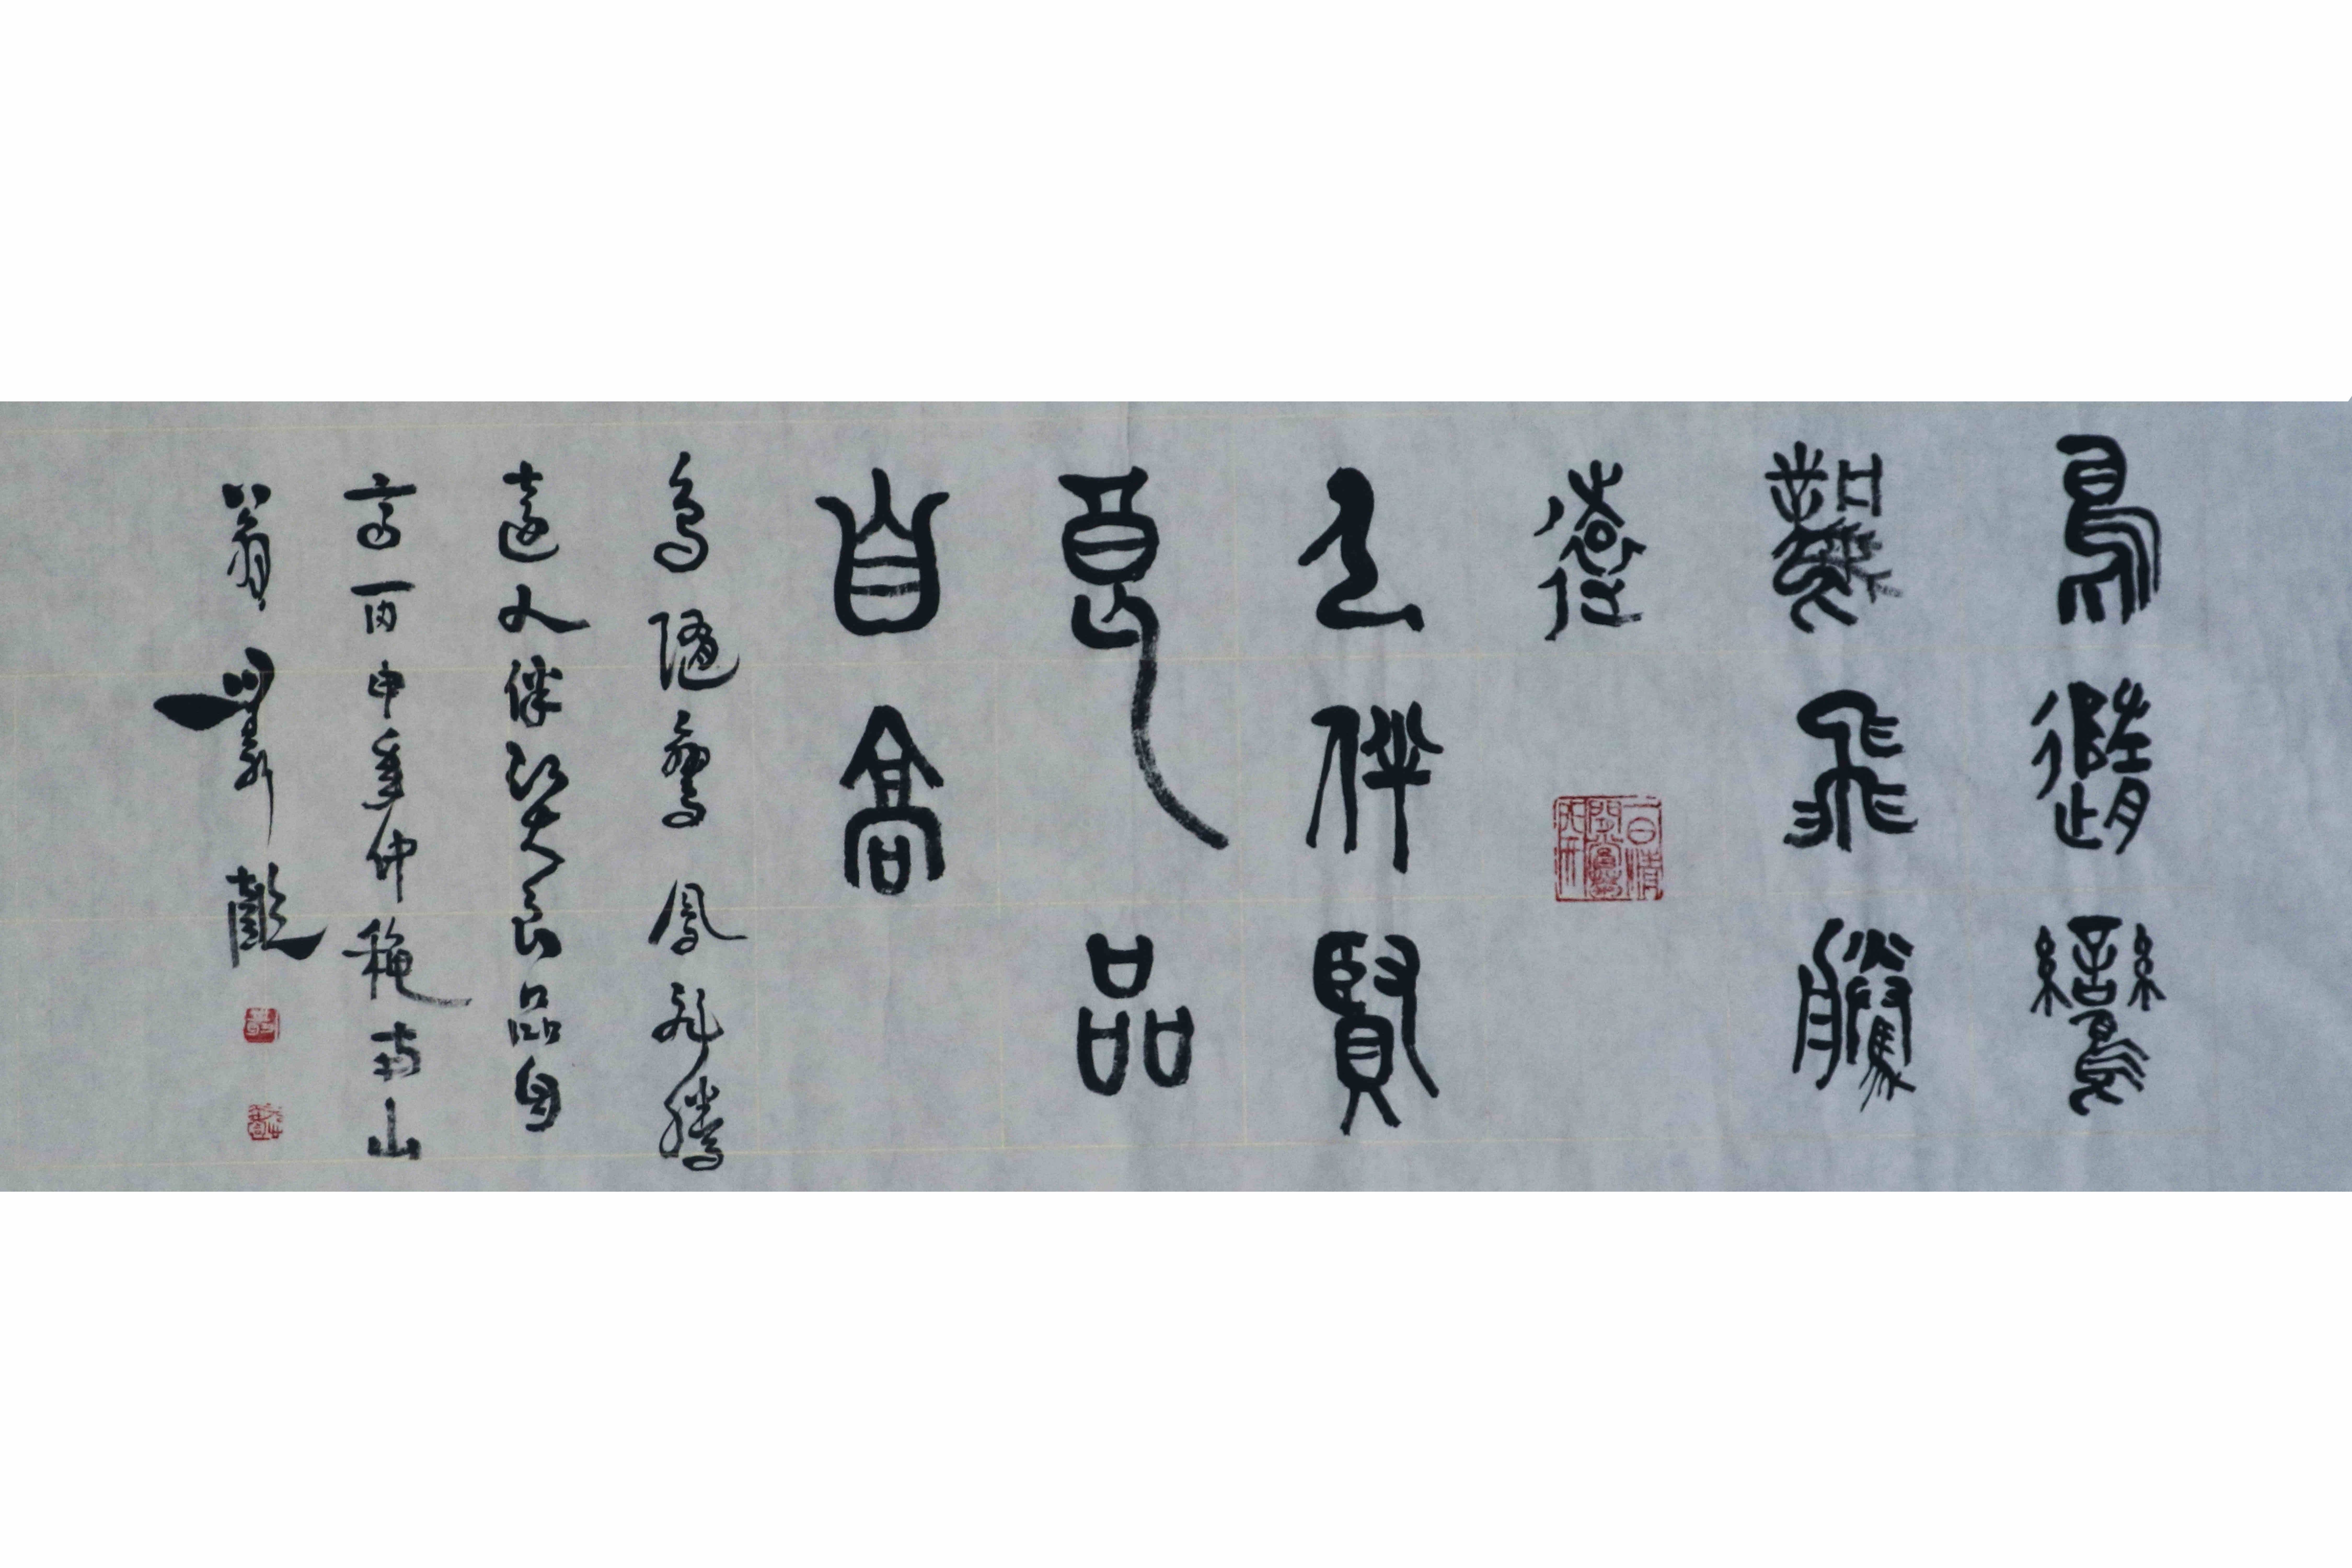 鳥隨鸞
鳳飛騰
遠
人伴賢
良品
自高
鳥隨鸞鳳飛騰
遠人伴賢良品自
高丙申年仲秋南山
翁